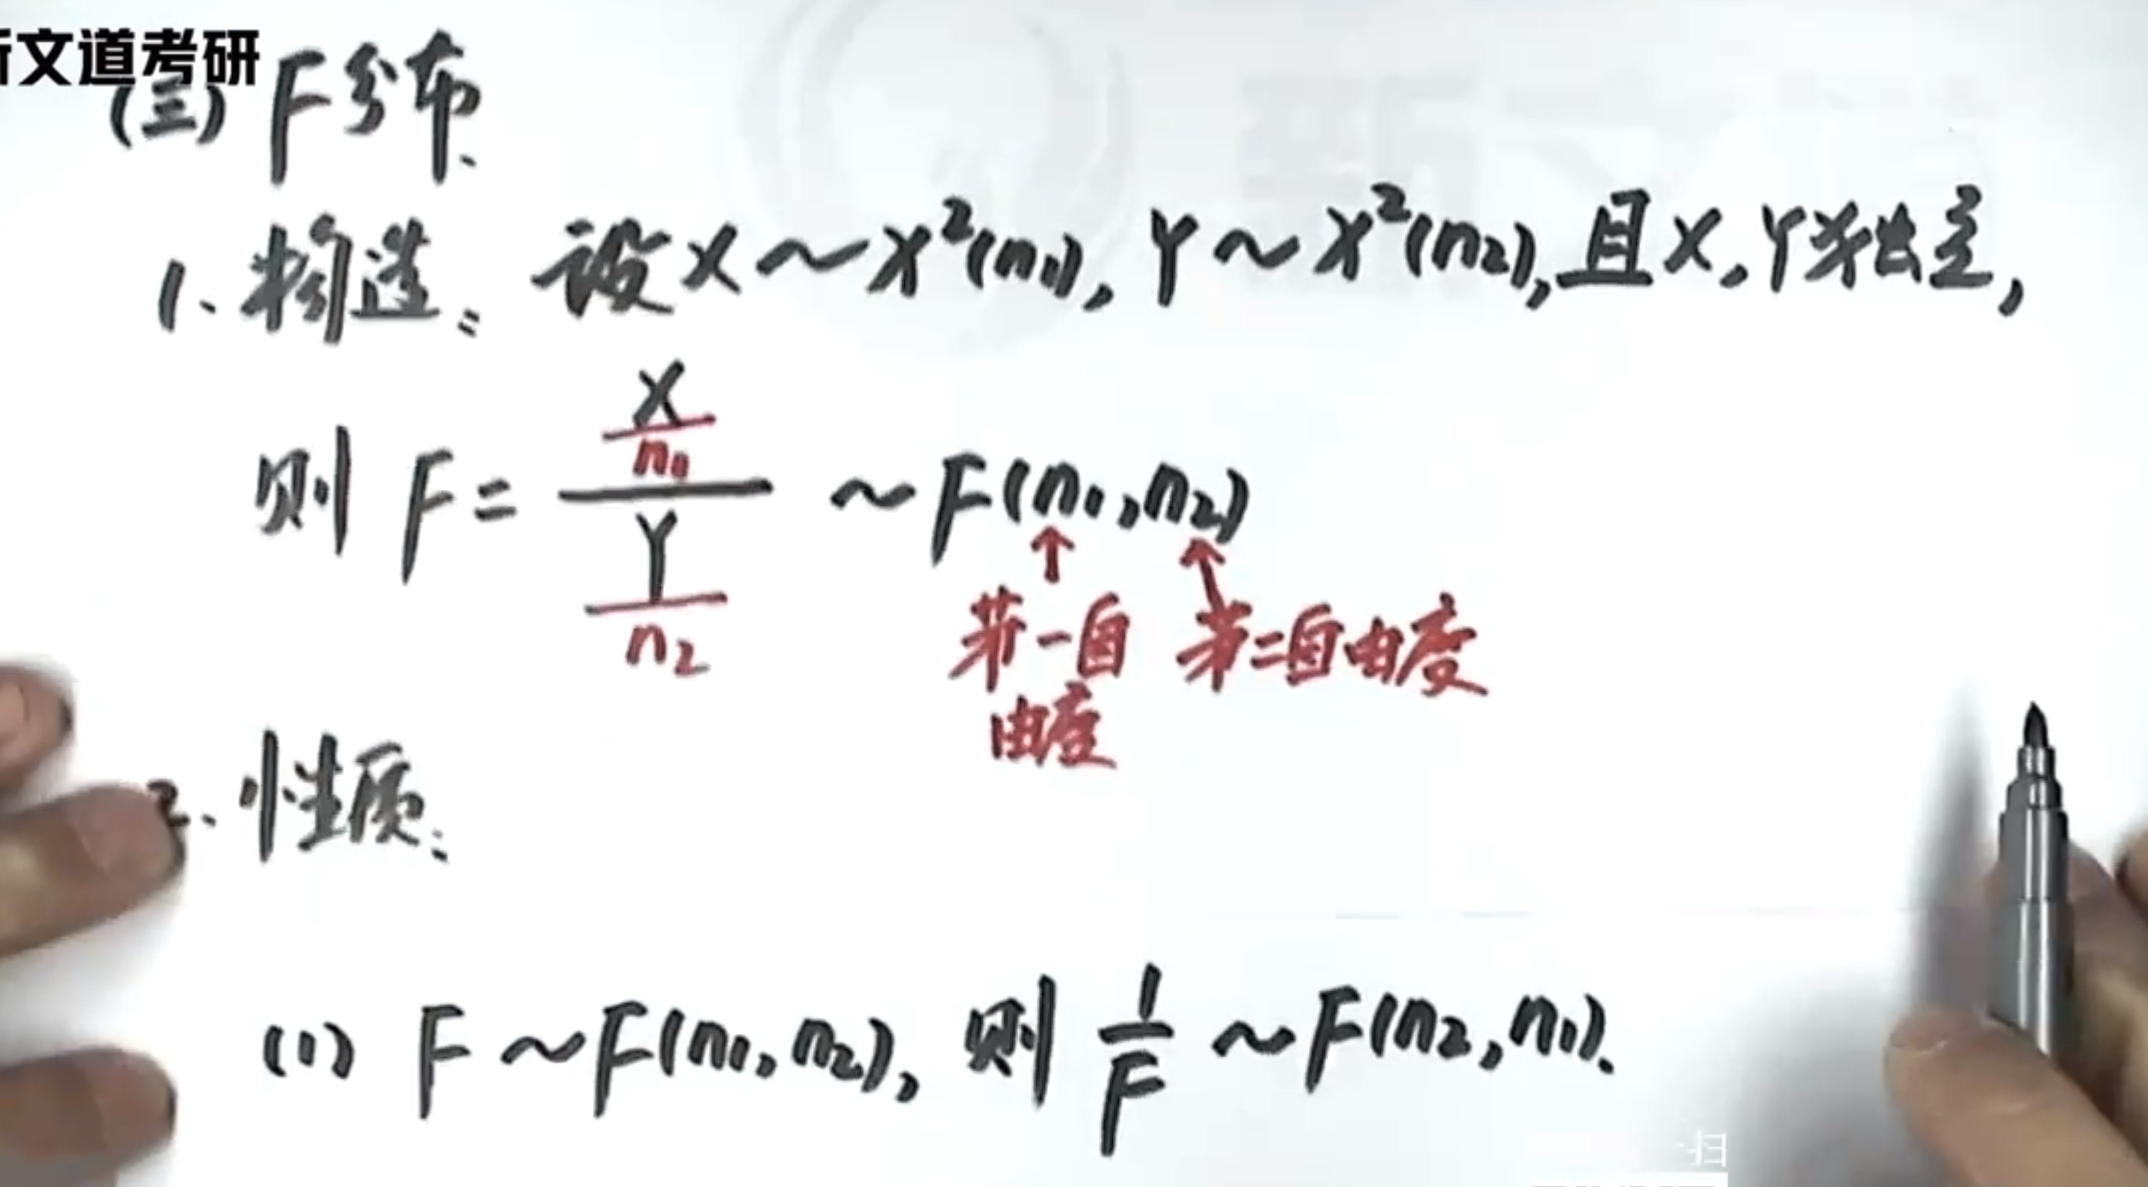 新文道考研
(三) F分布
1. 构造: 设X~χ²(n₁), Y~χ²(n₂), 且X, Y独立,
则 F = \frac{\frac{X}{n₁}}{\frac{Y}{n₂}} ~ F(n₁, n₂)
第一自由度 第二自由度
2. 性质:
(1) F~F(n₁, n₂), 则 \frac{1}{F} ~ F(n₂, n₁).
扫